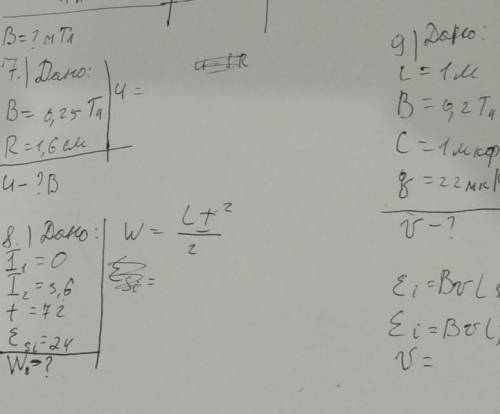 B = ? мТл
7.) Дано:
B = 0,25 Тл
R = 1,6 см
U - ? B
U =
8.) Дано:
I₁ = 0
I₂ = 5,6
t = 72
Ɛsi = 24
W - ?
W = LI²/2
9) Дано:
L = 1 м
B = 0,2 Тл
C = 1 мкФ
q = 22 мк
V - ?
Ɛi = BVL
Ɛi = BVL
V =